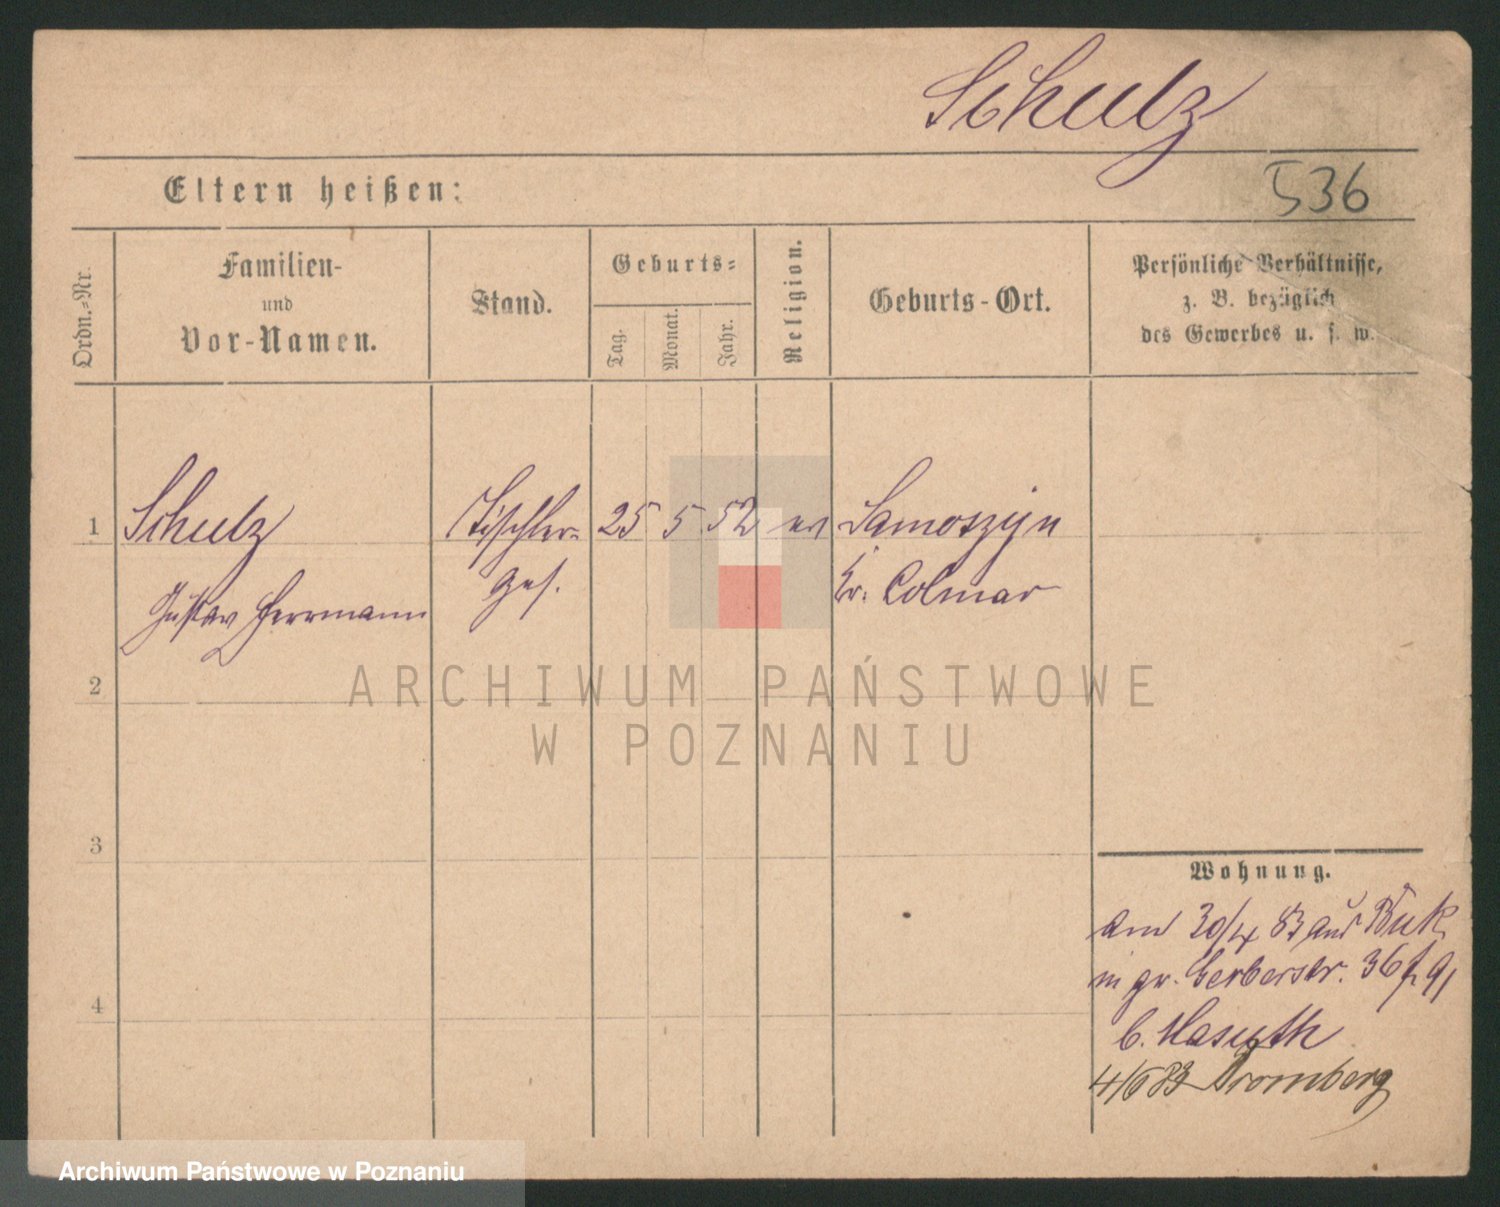 Schulz
536
Eltern heißen:
Ordn.-Nr.
Familien-
und
Vor-Namen.
Stand.
Geburts-
Tag.
Monat.
Jahr.
Religion.
Geburts-Ort.
Persönliche Verhältnisse,
z. B. bezüglich
des Gewerbes u. s. w.
1 Schulz Tischler- 25 5 52 ev Samoszyn
Gustav Herrmann Ges. Kr. Colmar
2
3
4
Wohnung.
am 30/4 83 aus Buk
in gr. Gerberstr. 36
b. Masuth
4/6 83 Bromberg
ARCHIWUM PAŃSTWOWE
W POZNANIU
Archiwum Państwowe w Poznaniu